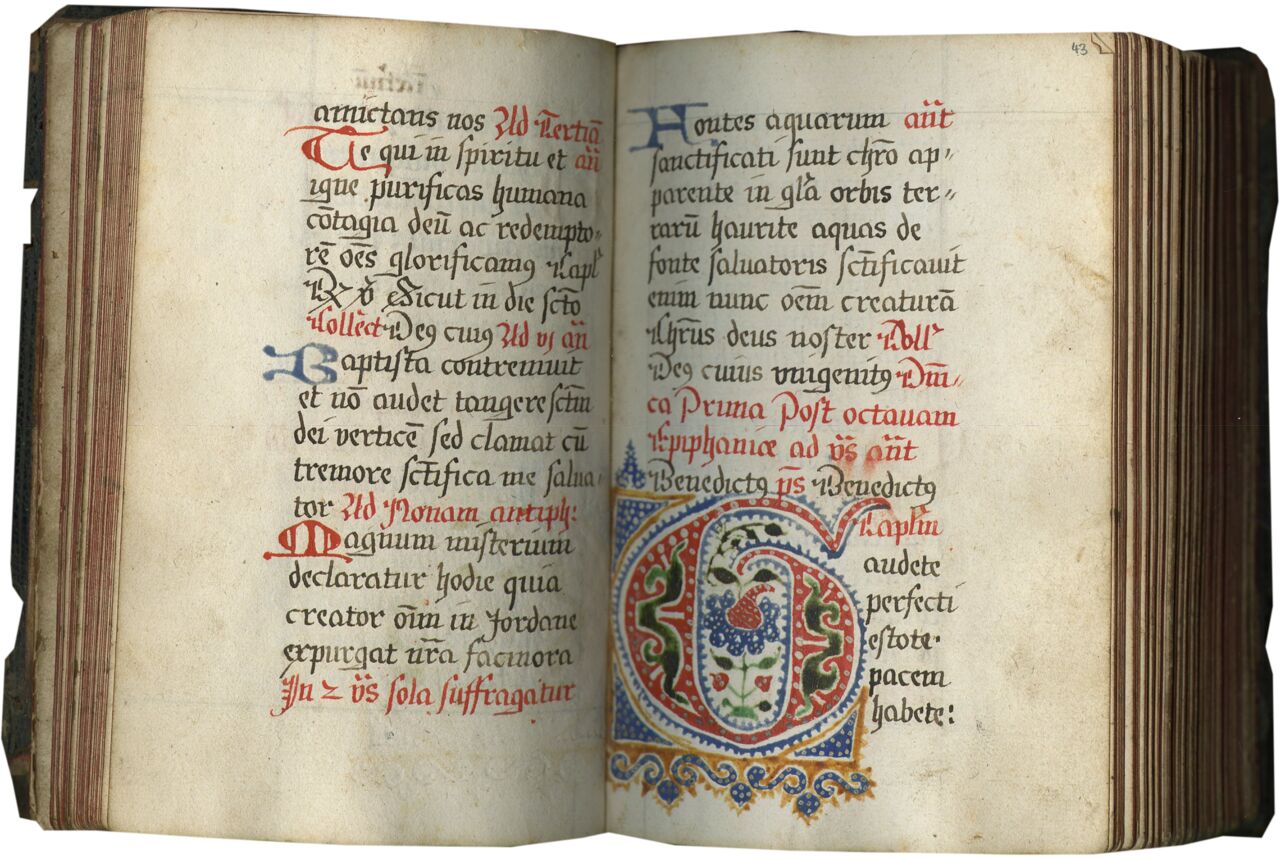 amictans nos Ad Tertiā
Te qui in spiritu et añ
igne purificas humana
cōtagia deū ac redempto„
rē oēs glorificamꝰ Capl̄
R̷ v̄ Sicut in die scto
Collect Deꝰ cuiꝰ Ad vj añ
Baptista contremuit
et nō audet tangere sctm̄
dei verticē sed clamat cū
tremore sctifica me salua
tor Ad Nonam antiph:
Magnum misterium
declaratur hodie quia
creator oīm in Jordane
expurgat nrā facinora
In 2 vs̄ sola suffragatur
43
Fontes aquarum añt
sanctificati sunt chr̄o ap„
parente in glā orbis ter„
rarū haurite aquas de
fonte saluatoris sctificauit
enim nunc oēm creaturā
Chr̄us deus noster Coll̄
Deꝰ cuius vnigenitꝰ Dm̄„
ca Prima Post octauam
Epiphaniæ ad vs̄ añt
Benedictꝰ ps̄ Benedictꝰ
Caplm̄
Gaudete
perfecti
estote·
pacem
habete: